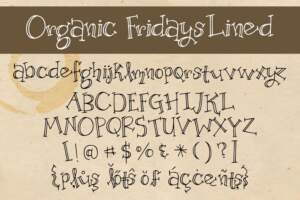 Organic Fridays Lined
abcdefghijklmnopqrstuvwxyz
ABCDEFGHIJKL
MNOPQRSTUVWXYZ
[!@#$%&*()?]
{plüs löts öf aççeñts}